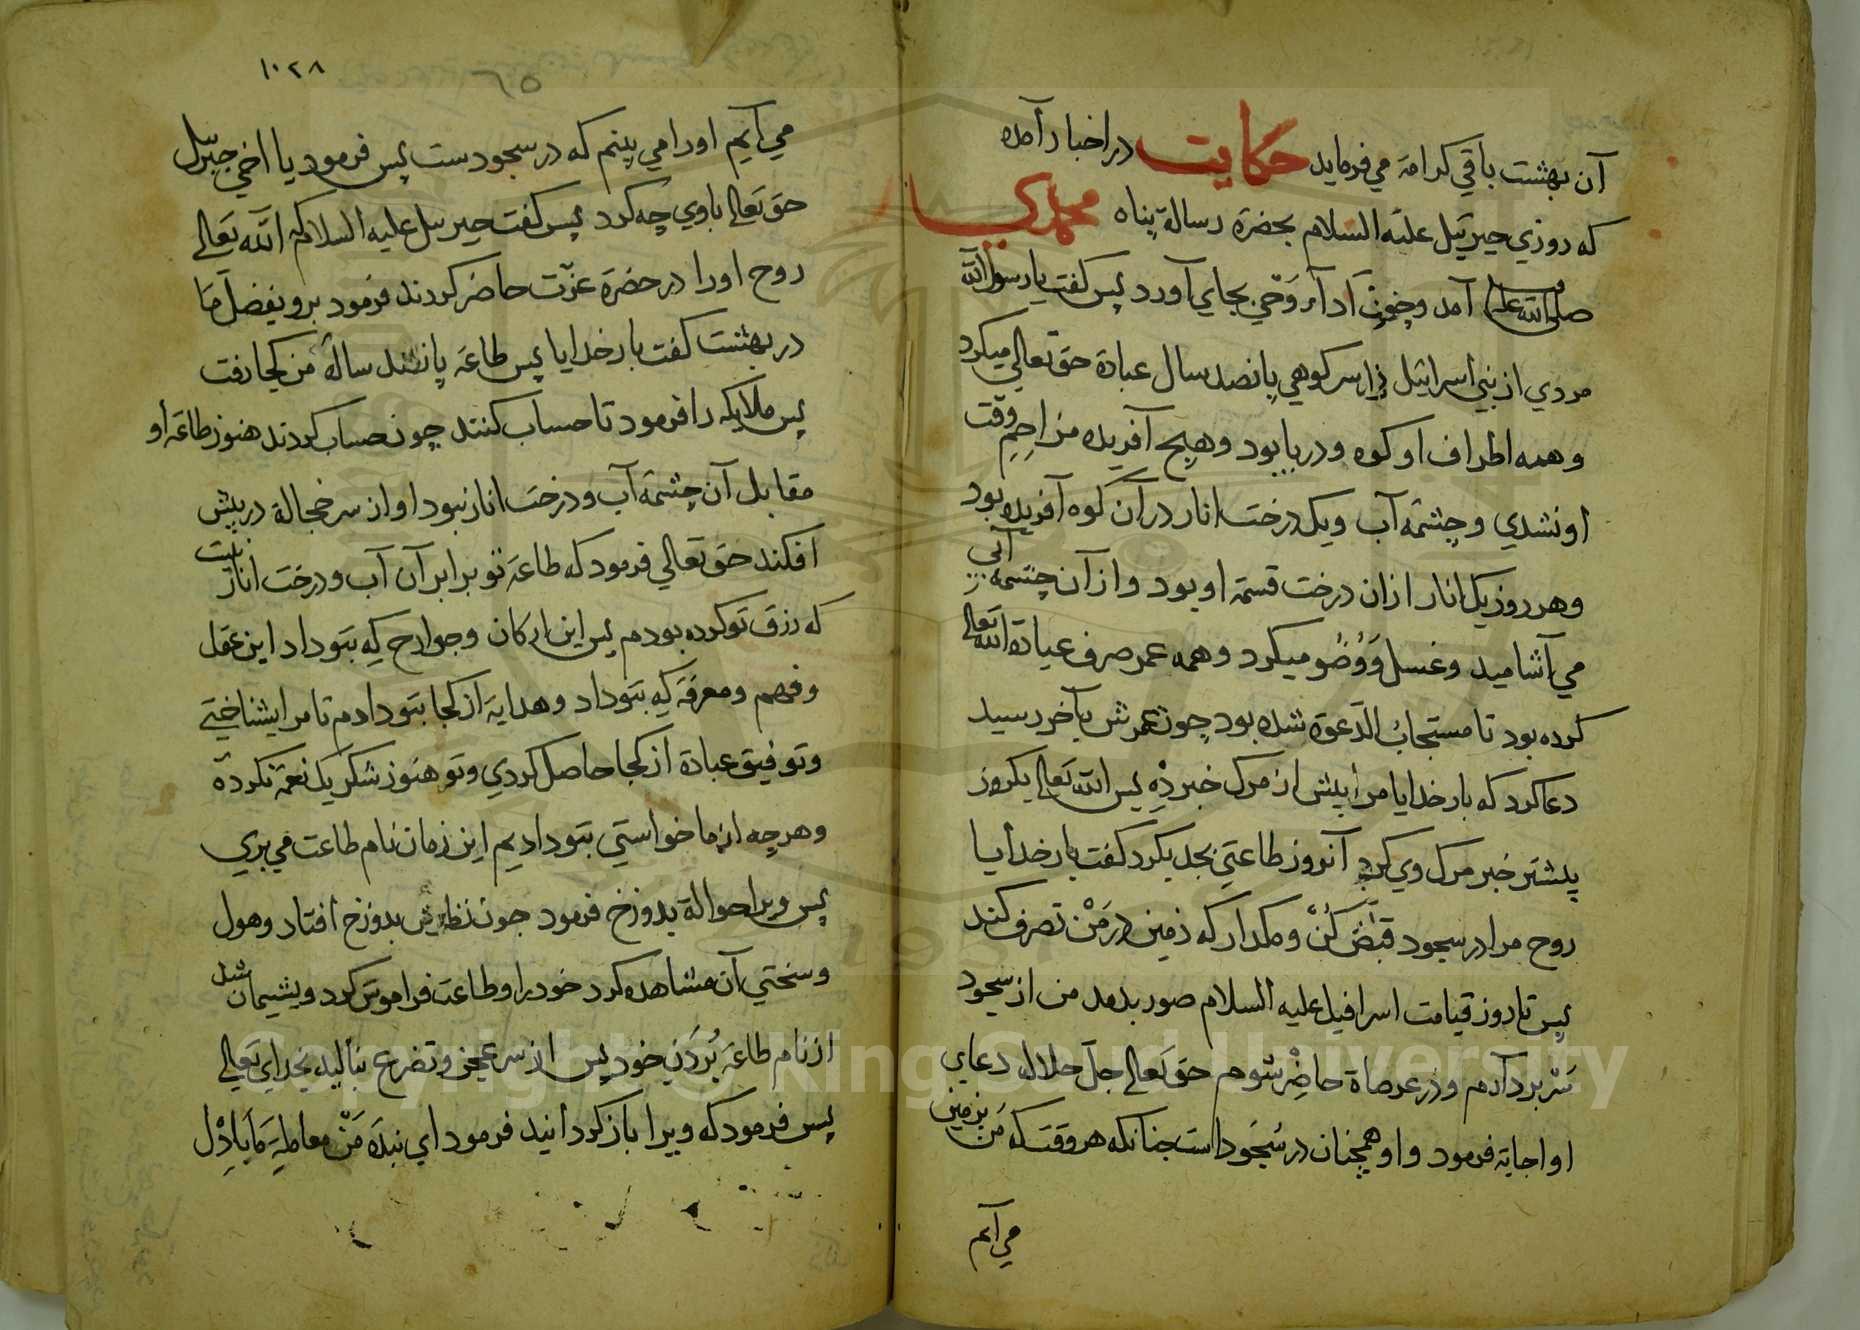 آن بهشت باقي كرامة مي فرمايد حكايت در اخبار آمده
كه روزي جبرئيل عليه السلام بحضرة رسالة پناه محمد
صلى الله عليه آمد و چون ادآء وَحْي بجاي آورد پس كفت يا رسول الله
مردي از بني اسرائيل بر سر كوهي پانصد سال عبادة حق تعالي ميكرد
و همه اطراف او كوه و دريا بود و هيچ آفريده مزاحِمِ وقت
او نشدي و چشمه آب و يك درخت انار در آن كوه آفريده بود
و هر روز يك انار از ان درخت قسمة او بود و از آن چشمه آبي
مي آشاميد و غسل و وُضُو ميكرد و همه عمر صرف عبادة الله تعالى
كرده بود تا مستجابُ الدّعوة شده بود چون عمرش بآخر رسيد
دعا كرد كه بار خدايا مرا پيش از مرك خبر دِه پس الله تعالى يكروز
پيشتر خبر مرك وي كرد آنروز طاعتي بجد بكرد كفت بار خدايا
روح مرا در سجود قبْض كُنْ و مكدار كه زمين در مَنْ تصرف كند
پس تا روز قيامت اسرافيل عليه السلام صور بدمد من از سجود
سَر بردآرم و در عرصاة حاضِر شوم حق تعالى جل جلاله دعاي
او اجابة فرمود و او همچنان در سُجُود است چنانكه هر وقت كه من بزمين
مي آيم
١٠٢٨
٦٥
مي آيم او را مي بينم كه در سجودست پس فرمود يا اخي جبرئيل
حق تعالى با وي چه كرد پس كفت جبرئيل عليه السلام كه الله تعالى
روح او را در حضرة عزّت حاضر كردند فرمود برو بفضل ما
در بهشت كفت بار خدايا پس طاعة پانصد سالهٔ من كجا رفت
پس ملايكه را فرمود تا حساب كنند چون حساب كردند هنوز طاعة او
مقابل آن چشمه آب و درخت انار نبود او از سر خجالة در پيش
افكند حق تعالي فرمود كه طاعة تو برابر آن آب و درخت انار نيست
كه رزق تو كرده بودم پس اين اركان و جوارح كه بتو داد اين عقل
و فهم و معرفة كه بتو داد و هداية از كجا بتو دادم تا مرا بشناختي
و توفيق عبادة از كجا حاصل كردي و تو هنوز شكر يك نعمة نكردهٔ
و هر چه از ما خواستي بتو داديم اين زمان نام طاعت مي بري
پس ويرا حوالة بدوزخ فرمود چون نظرش بدوزخ افتاد و هول
و سختي آن مشاهده كرد خود را و طاعت فراموش كرد و پشيمان شد
از نام طاعة بُردَنِ خود پس از سر عجز و تضرع بناليد بخداي تعالى
پس فرمود كه ويرا باز كردانيد فرمود اي بندَه مَنْ معاملهٔ ما با دِل
Copyright © King Saud University